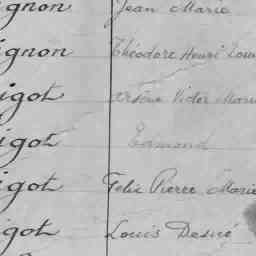 ignon Jean Marie
ignon Théodore Henri Loui
igot Arsène Victor Marie
igot Edmond
igot Felix Pierre Marie
igot Louis Desiré